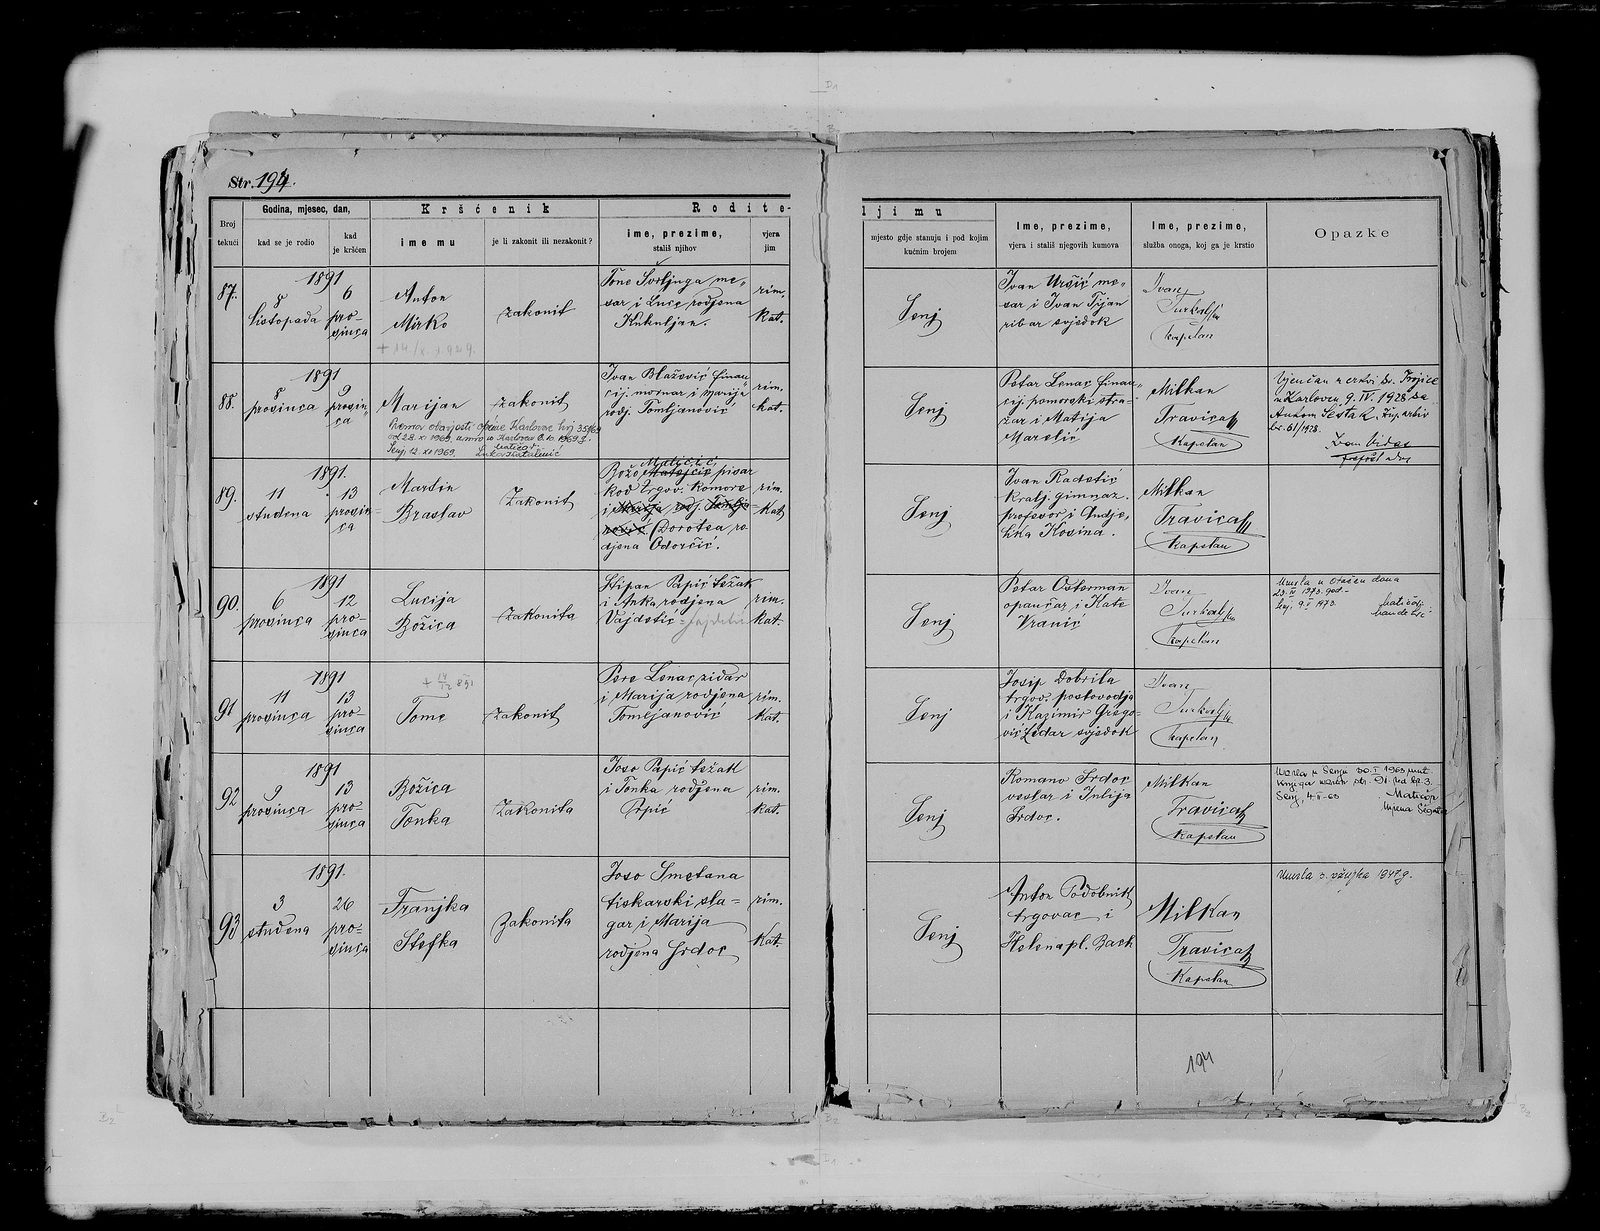 Str. 194.
Broj tekući
Godina, mjesec, dan,
kad se je rodio
kad je kršćen
Kršćenik
ime mu
je li zakonit ili nezakonit?
Rodite-
ime, prezime,
stališ njihov
vjera jim
ljimu
mjesto gdje stanuju i pod kojim
kućnim brojem
Ime, prezime,
vjera i stališ njegovih kumova
Ime, prezime,
služba onoga, koj ga je krstio
Opazke
87.
1891
8
listopada
6
pro-
sinca
Anton
Mirko
zakonit
Tone Svetljuga me-
sar i Luce rodjena
Kukuljan.
rim.
kat.
Senj
Ivan Uršić me-
sar i Ivan Trjan
ribar svjedok
Ivan
kapelan
88.
1891
8
prosinca
9
prosin-
ca
Marijan
zakonit
Ivan Blažević finan
cij. mornar i Marija
rodj. Tomljanović
rim.
kat.
Senj
Petar Lenac finan-
cij. pomorski stra-
žar i Matija
Marelić
Milkan
Travica
Kapelan
Vjenčan u crkvi sv. Trojice
u Karlovcu 9. IV. 1928 sa
br. 61/1928.
89.
1891.
11
studena
13
prosin-
ca
Martin
Braslav
Zakonit
Božo Matejčić pisar
kod trgov. Komore
Dorotea ro-
djena Odorčić.
rim.
kat
Senj
Ivan Radetić
kralj. gimnaz.
profesor i Andje-
lika Kosina.
Milkan
Travica
Kapelan
90.
1891
6
prosinca
12
pro-
sinca
Lucija
Božica
zakonita
Stipan Papić težak
i Anka rodjena
Vajdetić
rim.
kat.
Senj
Petar Ostermann
opančar i Kate
Vranić
Ivan
kapelan
Umrla u Otočcu dana
Senj, 9. V 1973.
91
1891
11
prosinca
13
pro-
sinca
Tome
zakonit
Pere Lenac zidar
i Marija rodjena
Tomljanović
rim.
kat.
Senj
Josip Dobrila
trgov. poslovodja
i Kazimir Grego-
vić zidar svjedok
Ivan
kapelan
92
1891
9
prosinca
13
pro-
sinca
Božica
Tonka
zakonita
Joso Papić težak
i Tonka rodjena
Papić
rim.
kat.
Senj
Romano Srdoc
postar i Julija
Srdoc.
Milkan
Travica
Kapelan
Umrla u Senju 30. I 1963 mat.
knjiga umrlih str. 91. na br. 3.
Matičar
93
1891.
3
studena
26
pro-
sinca
Franjka
Stefka
Zakonita
Joso Smetana
tiskarski sla-
gar i Marija
rodjena Srdoc
rim.
kat.
Senj
Anton Podobnik
trgovac i
Helena pl. Zach
Milkan
Travica
Kapelan
Umrla 3. ožujka 1947 g.
194